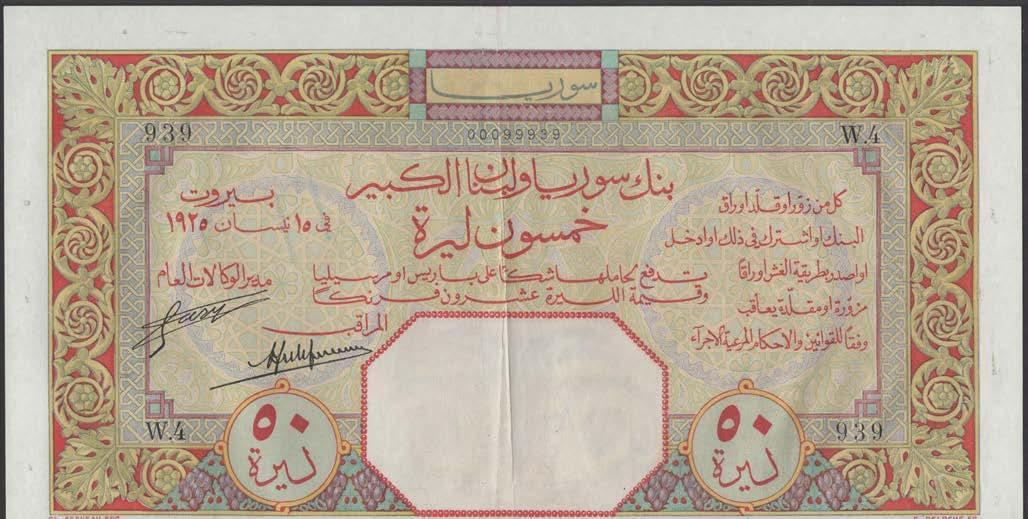 سوريا
939
00099939
W.4
بنك سوريا ولبنان الكبير
خمسون ليرة
تدفع لحاملها شكًا على باريس او مرسيليا
وقيمة الليرة عشرون فرنكًا
كل من زوّر او قلّد اوراق
البنك او اشترك في ذلك او ادخل
او اصدر بطريقة الغش اوراقا
مزوّرة او مقلّدة يعاقب
وفقًا للقوانين والاحكام المرعية الاجرآء
بيروت
في ١٥ نيسان ١٩٢٥
مدير الوكالات العام
المراقب
W.4
939
٥٠
ليرة
٥٠
ليرة